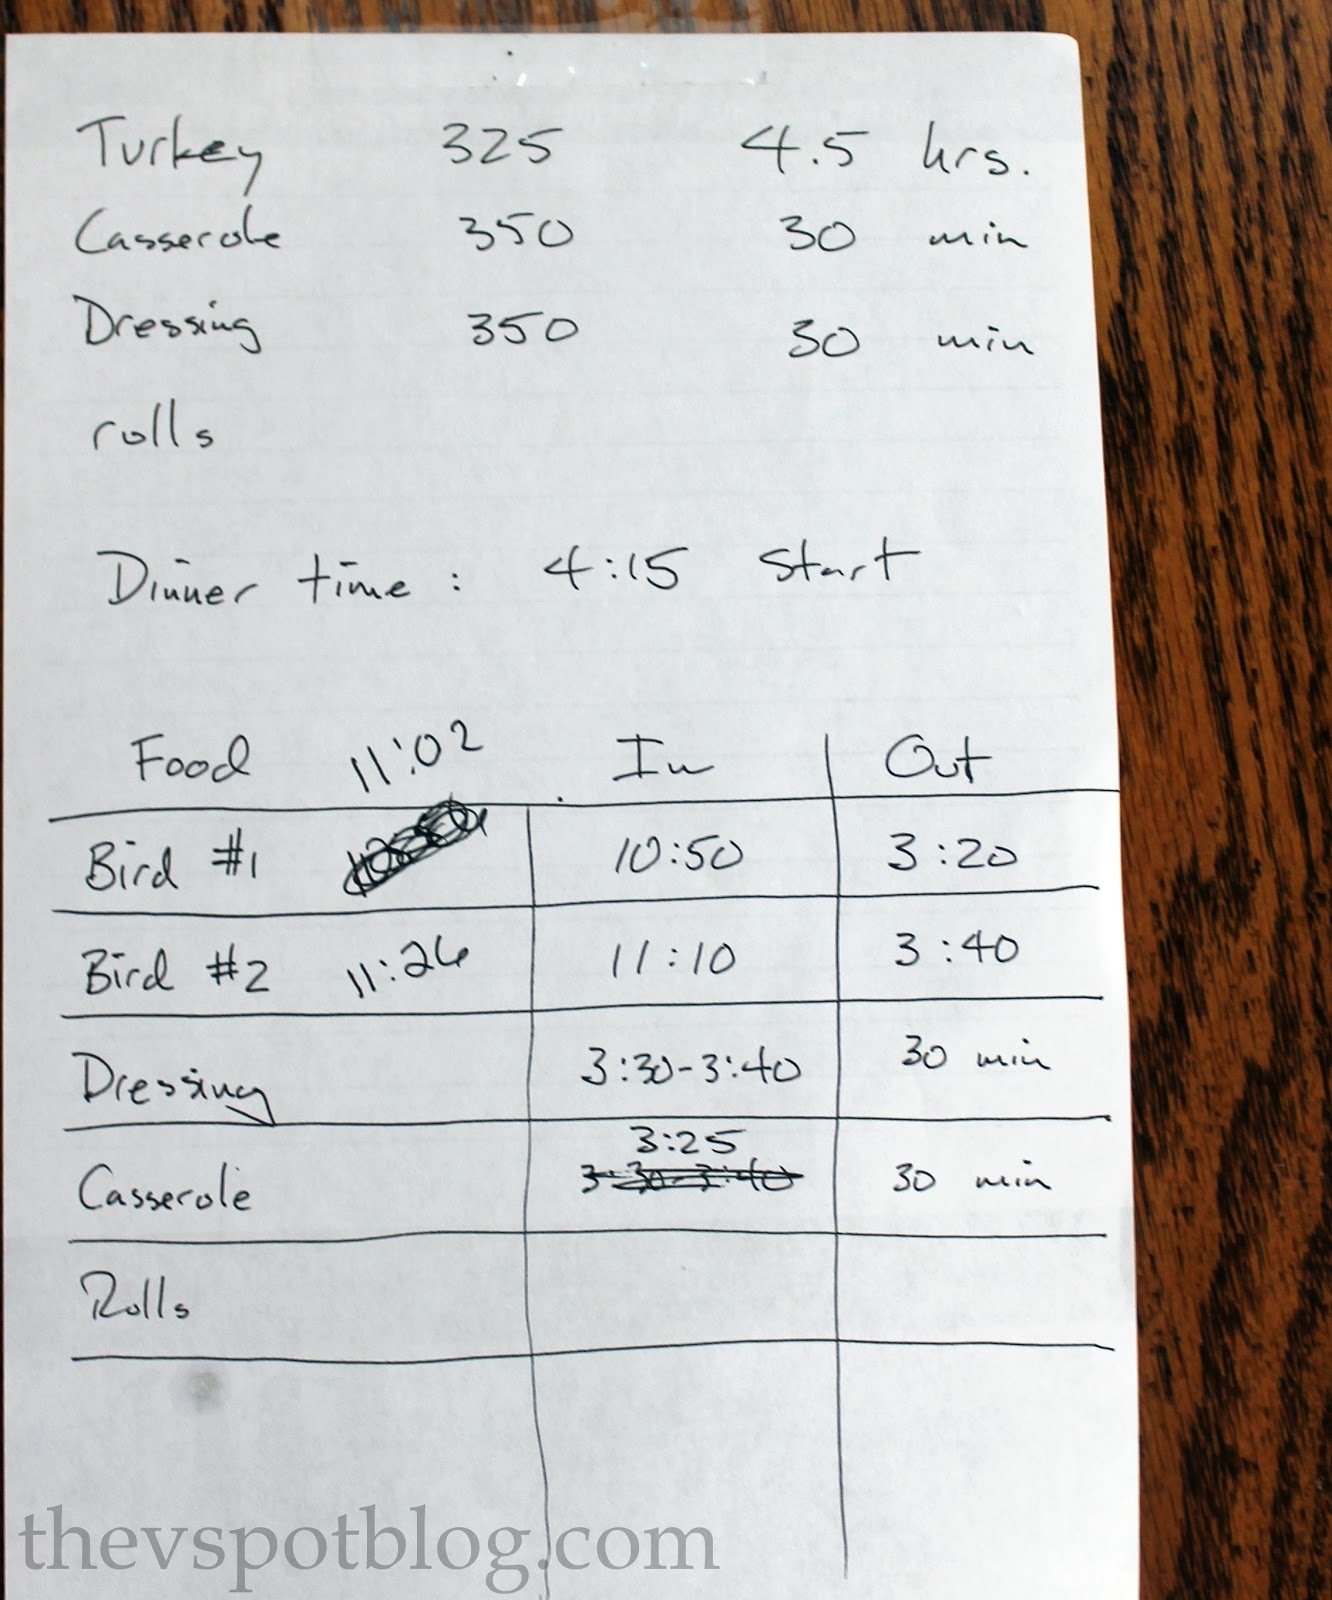 Turkey 325 4.5 hrs.
Casserole 350 30 min
Dressing 350 30 min
rolls
Dinner time : 4:15 Start
Food 11:02 In Out
Bird #1 10:50 3:20
Bird #2 11:26 11:10 3:40
Dressing 3:30-3:40 30 min
3:25
Casserole 3:30-3:40 30 min
Rolls
thevspotblog.com